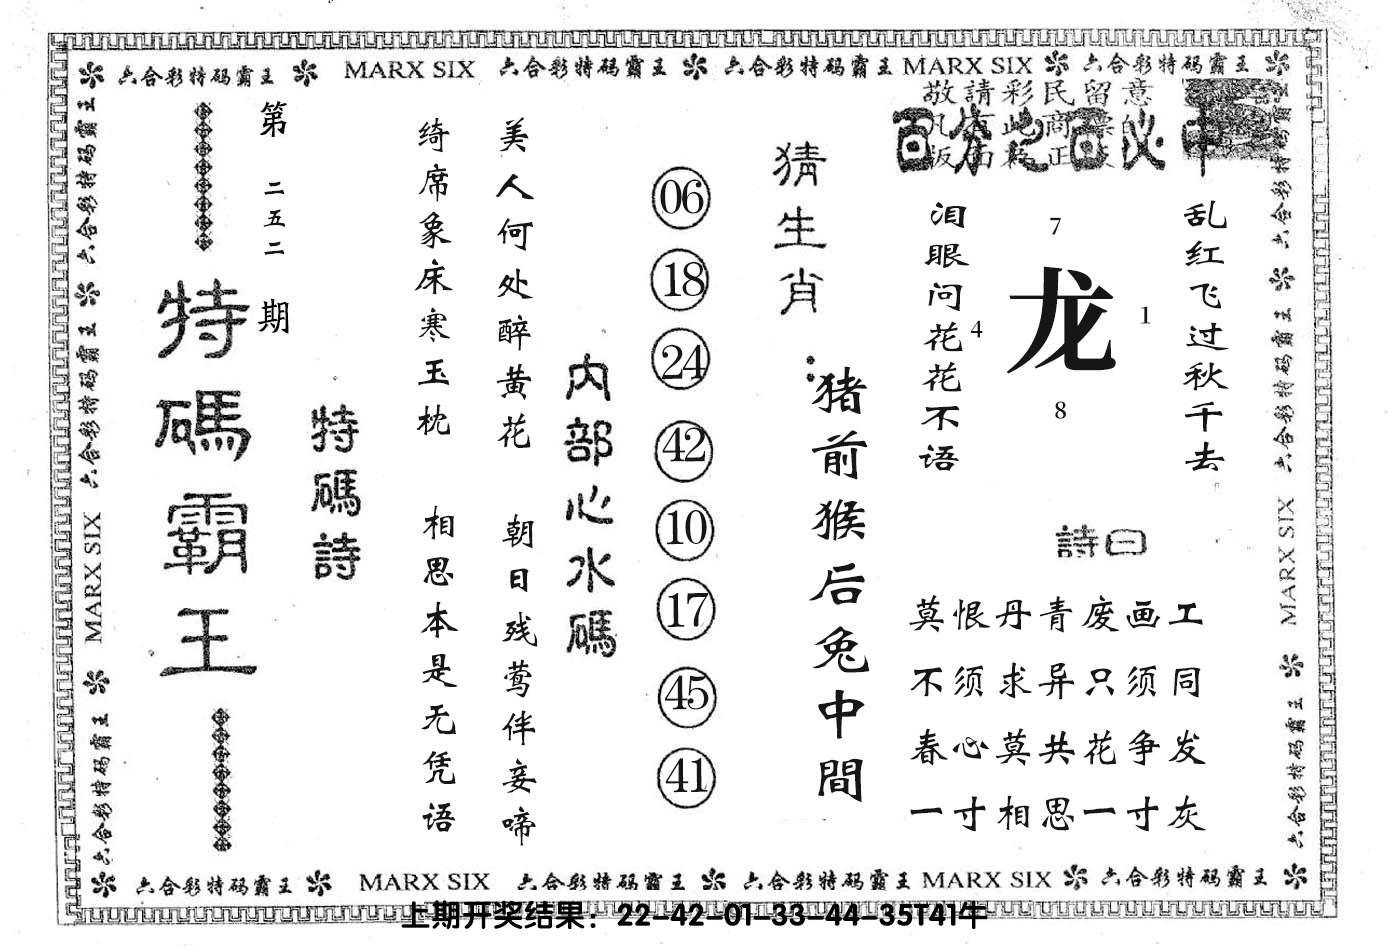 六合彩特码霸王 MARX SIX 六合彩特码霸王 六合彩特码霸王 MARX SIX 六合彩特码霸王
六合彩特码霸王 六合彩特码霸王 MARX SIX 六合彩特码霸王
第二五二期
特碼霸王
特碼詩
绮席象床寒玉枕 相思本是无凭语
美人何处醉黄花 朝日残莺伴妾啼
内部心水碼
06
18
24
42
10
17
45
41
猜生肖：
猪前猴后兔中間
敬請彩民留意
百分之百必中
泪眼问花花不语
7
4
龙
1
8
乱红飞过秋千去
詩曰
莫恨丹青废画工
不须求异只须同
春心莫共花争发
一寸相思一寸灰
六合彩特码霸王 六合彩特码霸王 MARX SIX 六合彩特码霸王
六合彩特码霸王 MARX SIX 六合彩特码霸王 六合彩特码霸王 MARX SIX 六合彩特码霸王
上期开奖结果：22-42-01-33-44-35T41牛